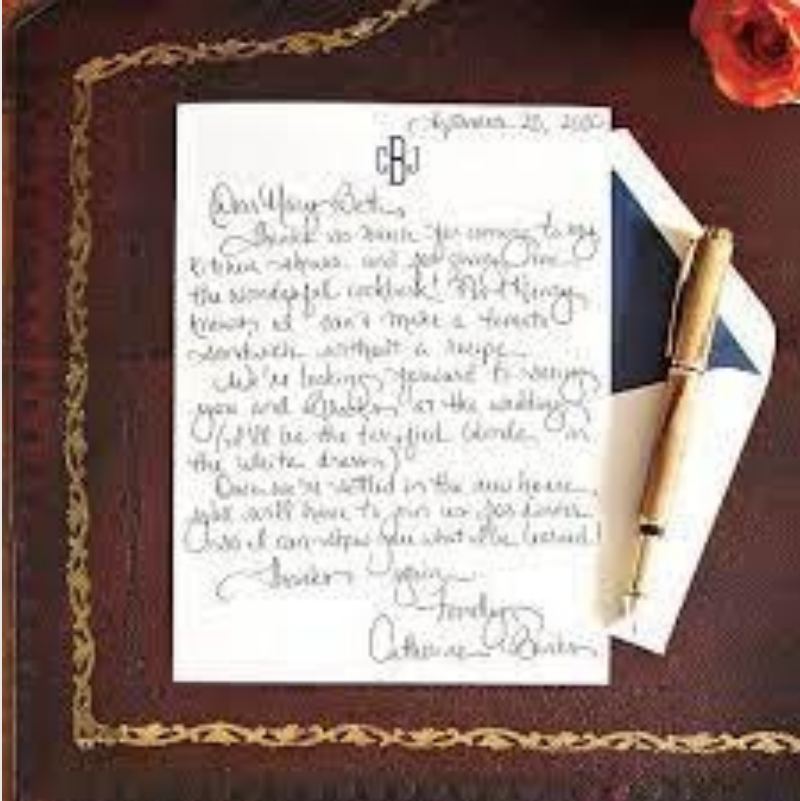 September 20, 2000
CBJ
Dear Mary Beth,
Thank so much for coming to my
kitchen and for giving me
the wonderful cookbook!
knows I can't make a tomato
sandwich without a recipe.
We're looking forward to seeing
you and at the wedding.
(I'll be the terrified blonde in
the white dress)
Once we're settled in the new house,
you will have to join us for dinner
so I can show you what I've learned!
Thanks again.
Fondly,
Catherine